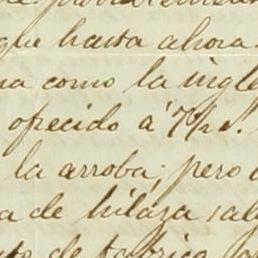 que hasta ahora
na como la ingle
ofrecido á 7½ s.
la arroba; pero
a de hilaza sal
to de fabrica